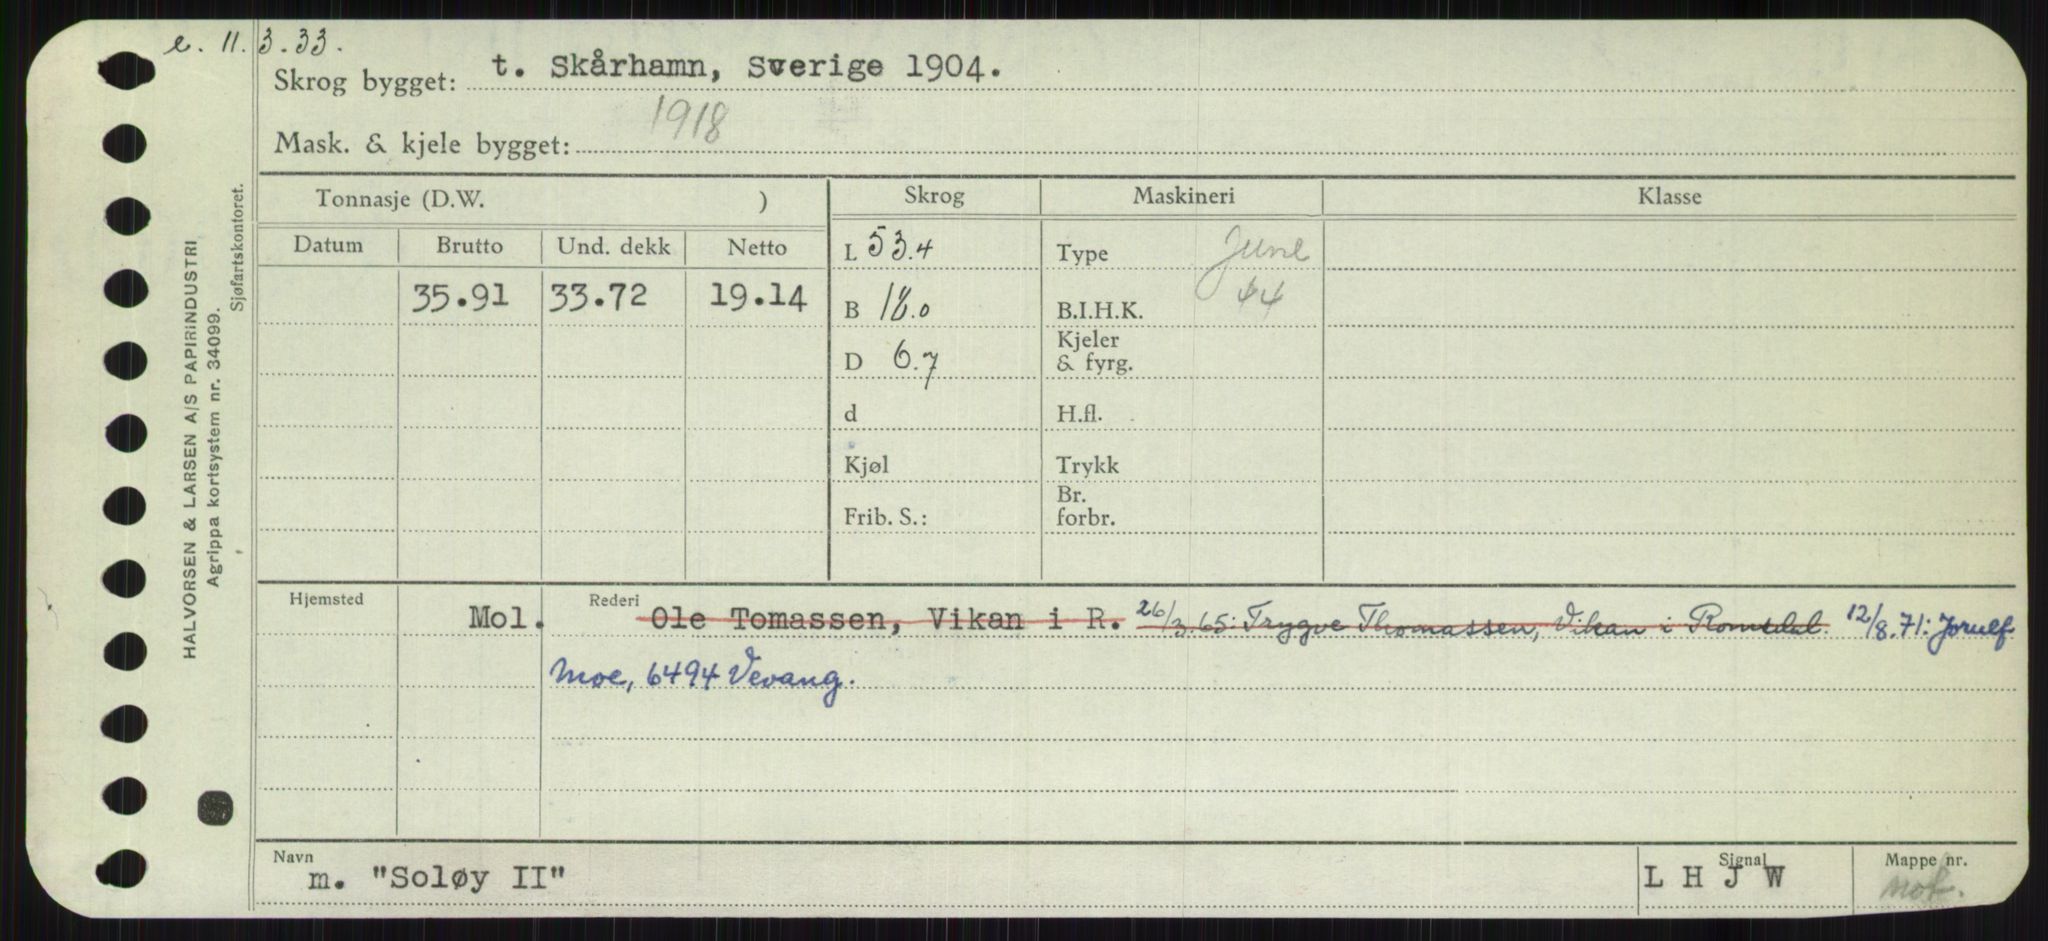 e. 11.3.33.
Skrog bygget: t. Skårhamn, Sverige 1904.
Mask. & kjele bygget: 1918
Tonnasje (D.W. ) Skrog Maskineri Klasse
Datum Brutto Und. dekk Netto
L 53.4 Type June
35.91 33.72 19.14 B 18.0 B.I.H.K. 44
D 6.7 Kjeler & fyrg.
d H.fl.
Kjøl Trykk
Frib. S.: Br. forbr.
Hjemsted Rederi
Mol. Ole Tomassen, Vikan i R. 26/3.65: Trygve Thomassen, Vikan i Romsdal. 12/8.71: Jorulf
Moe, 6494 Vevang.
Navn Signal Mappe nr.
m. "Soløy II" L H J W mot.
HALVORSEN & LARSEN A/S PAPIRINDUSTRI
Agrippa kortsystem nr. 34099.
Sjøfartskontoret.